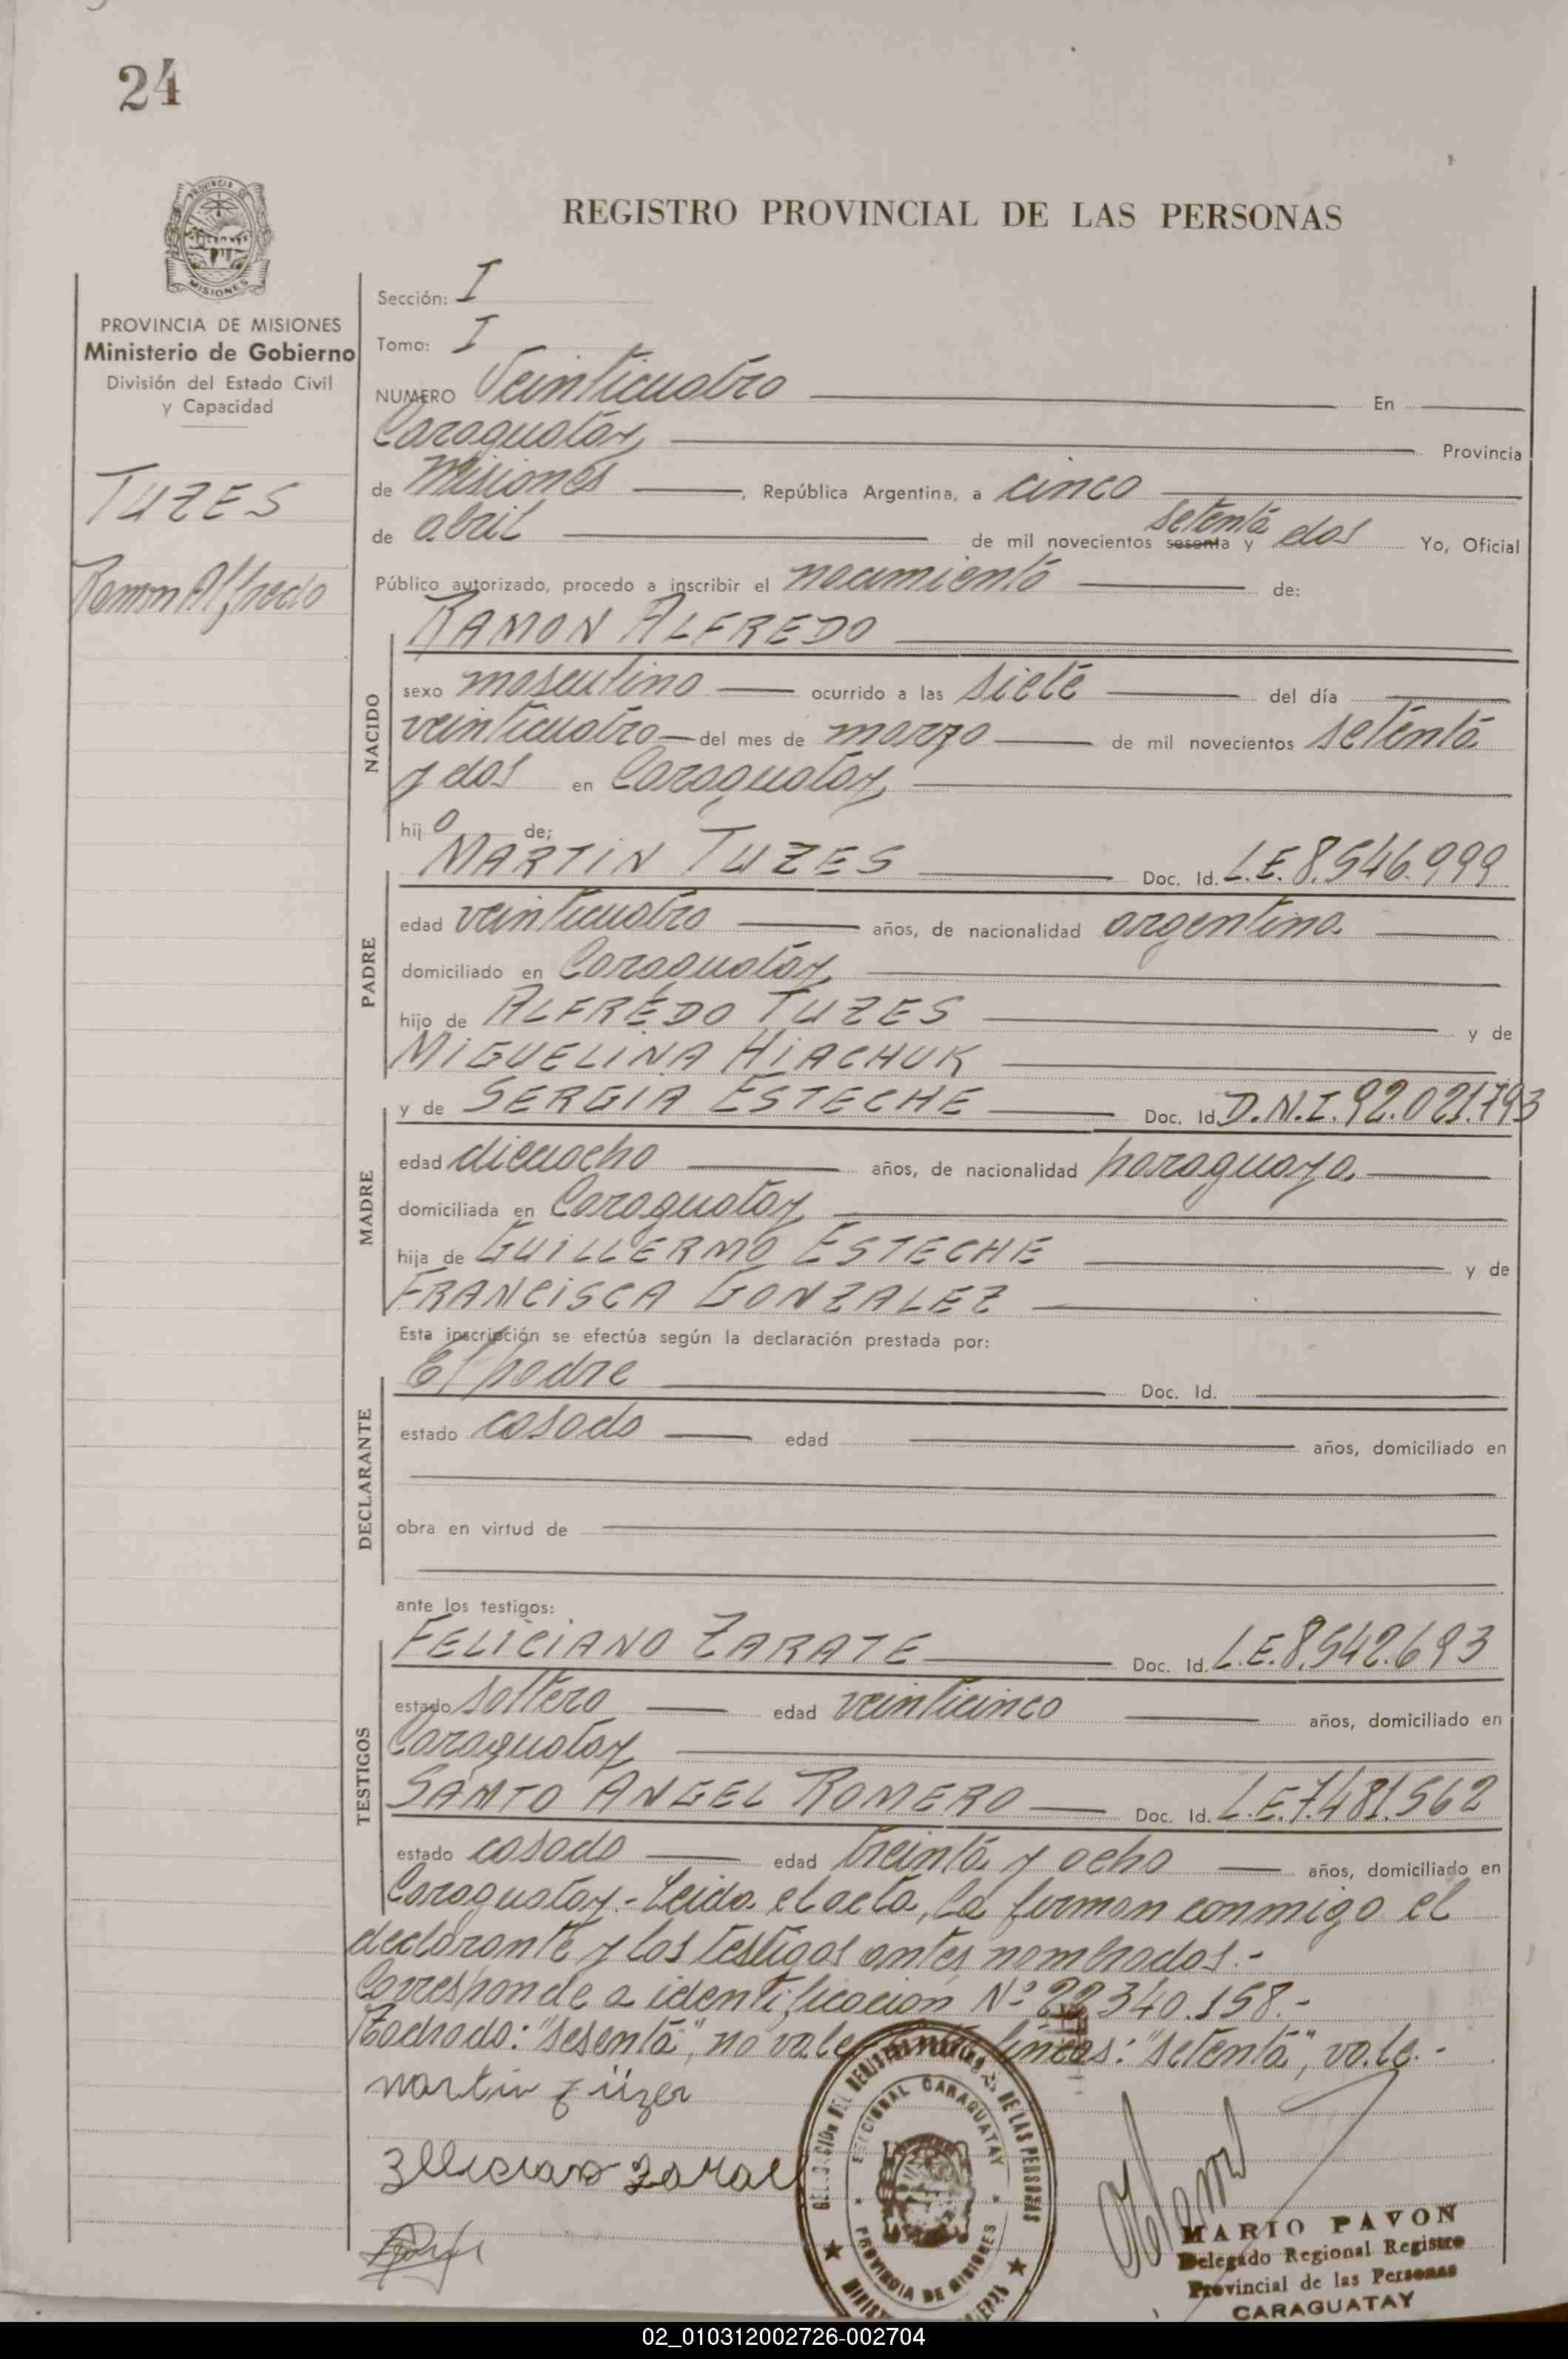 24
REGISTRO PROVINCIAL DE LAS PERSONAS
PROVINCIA DE MISIONES
Ministerio de Gobierno
División del Estado Civil
y Capacidad
TUZES
Ramon Alfredo
Sección: I
Tomo: I
NUMERO Veinticuatro En
Caraguatay Provincia
de Misiones, República Argentina, a cinco
de abril de mil novecientos sesenta y setenta dos Yo, Oficial
Público autorizado, procedo a inscribir el nacimiento de:
NACIDO
RAMON ALFREDO
sexo masculino ocurrido a las siete del día
veinticuatro del mes de marzo de mil novecientos setenta
y dos en Caraguatay
hijo de;
PADRE
MARTIN TUZES Doc. Id. L.E. 8.546.999
edad veinticuatro años, de nacionalidad argentina
domiciliado en Caraguatay
hijo de ALFREDO TUZES y de
MIGUELINA HIACHUK
MADRE
y de SERGIA ESTECHE Doc. Id. D.N.I. 92.021.793
edad dieciocho años, de nacionalidad paraguaya
domiciliada en Caraguatay
hija de GUILLERMO ESTECHE y de
FRANCISCA GONZALEZ
Esta inscripción se efectúa según la declaración prestada por:
DECLARANTE
El padre Doc. Id.
estado casado edad años, domiciliado en
obra en virtud de
ante los testigos:
TESTIGOS
FELICIANO ZARATE Doc. Id. L.E. 8.542.693
estado soltero edad veinticinco años, domiciliado en
Caraguatay
SANTO ANGEL ROMERO Doc. Id. L.E. 7.481.562
estado casado edad treinta y ocho años, domiciliado en
Caraguatay.- Leida el acta, la firman conmigo el
declarante y los testigos antes nombrados.-
Corresponde a identificación Nº 22.340.158.-
Tachado: "sesenta", no vale líneas: "setenta", vale.-
martin
SECCIONAL CARAGUATAY
PROVINCIA DE MISIONES
DE LAS PERSONAS
MARIO PAVON
Delegado Regional Registro
Provincial de las Personas
CARAGUATAY
02_010312002726-002704